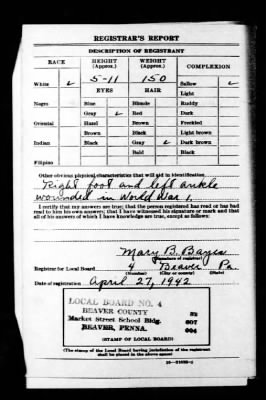 REGISTRAR'S REPORT
DESCRIPTION OF REGISTRANT
RACE HEIGHT (Approx.) WEIGHT (Approx.) COMPLEXION
5-11 150
White ✓ Sallow ✓
EYES HAIR Light
Negro Blue Blonde Ruddy
Gray ✓ Red Dark
Oriental Hazel Brown Freckled
Brown Black Light brown
Indian Black Gray ✓ Dark brown
Bald Black
Filipino
Other obvious physical characteristics that will aid in identification
Right foot and left ankle
wounded in World War 1.
I certify that my answers are true; that the person registered has read or has had
read to him his own answers; that I have witnessed his signature or mark and that
all of his answers of which I have knowledge are true, except as follows:
Mary B.
(Signature of registrar)
Registrar for Local Board 4 Beaver Pa.
(Number) (City or county) (State)
Date of registration April 27, 1942
LOCAL BOARD NO. 4
BEAVER COUNTY 32
Market Street School Bldg. 007
BEAVER, PENNA. 004
(STAMP OF LOCAL BOARD)
(The stamp of the Local Board having jurisdiction of the registrant
shall be placed in the above space)